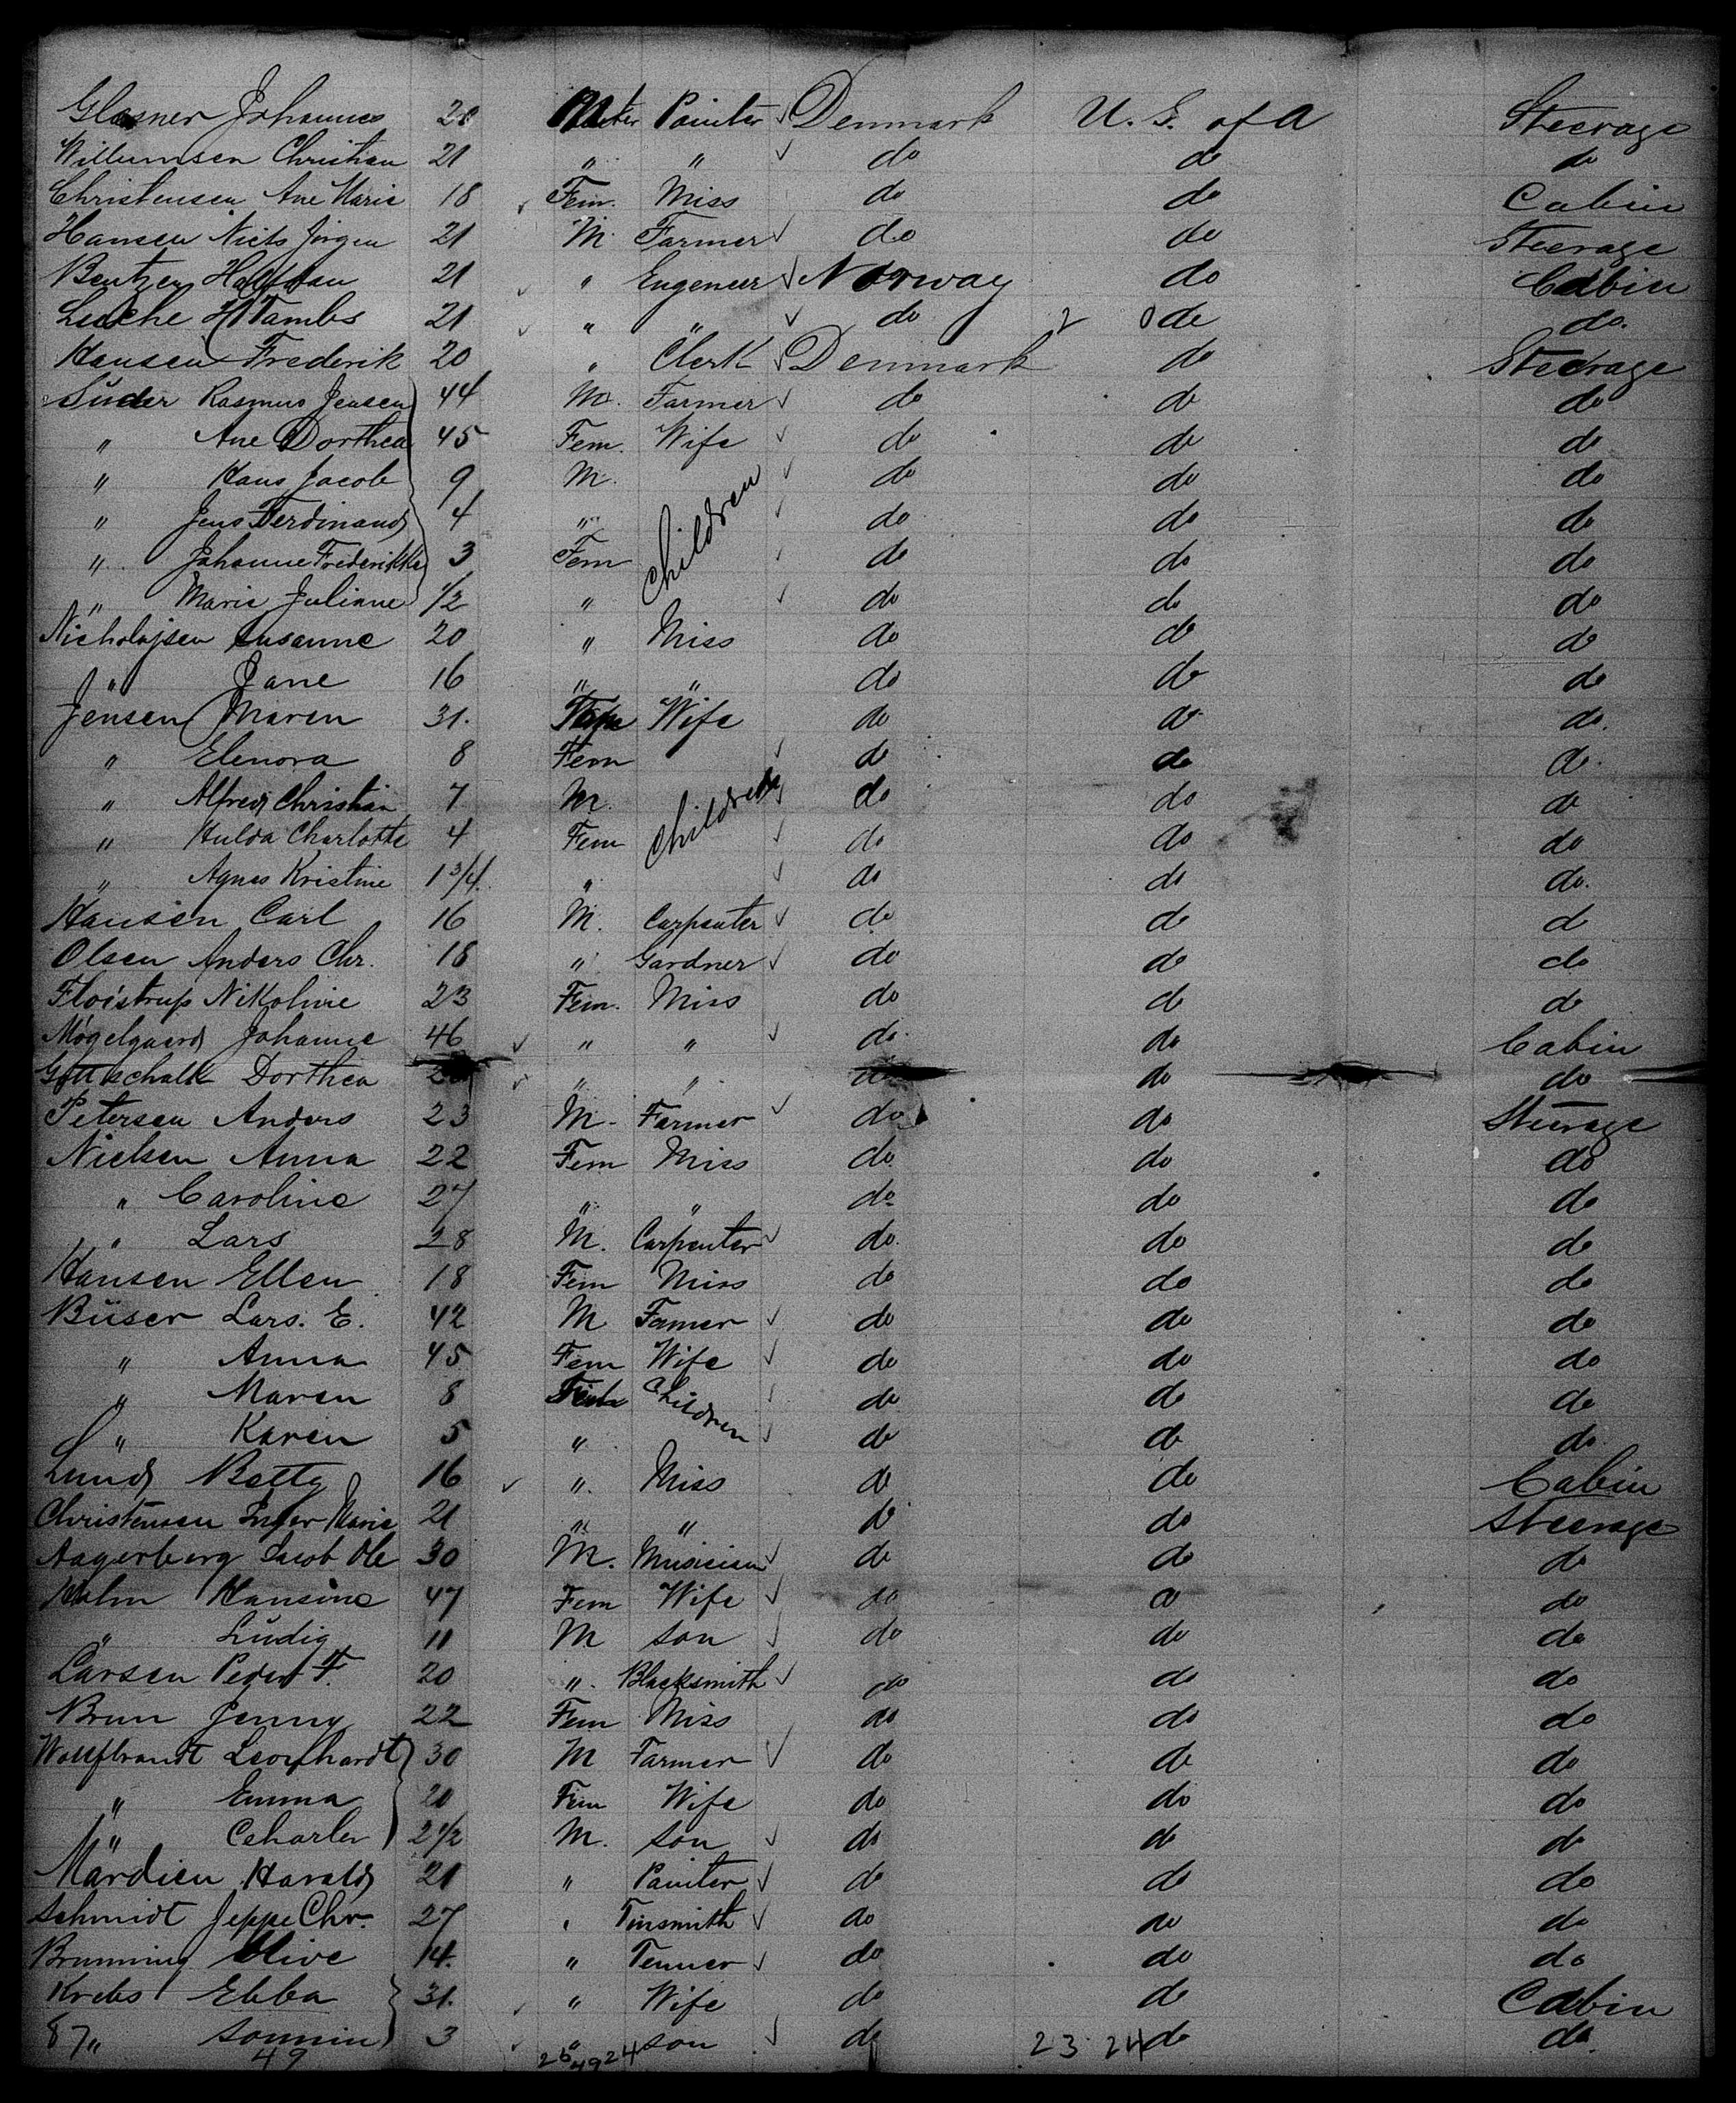 Glasner Johannes 20 M Painter Denmark U. S. of A Steerage
Willumsen Christian 21 " " do do do
Christensen Ane Marie 18 Fem. Miss do do Cabin
Hansen Niels Jörgen 21 M. Farmer do do Steerage
Bentzen Halfdan 21 " Engeneer Norway do Cabin
H Tambs 21 " " do 2 do do.
Hansen Frederik 20 " Clerk Denmark do Steerage
Suder Rasmus Jensen 44 M. Farmer do do do
" Ane Dorthea 45 Fem. Wife do do do
" Hans Jacob 9 M. children do do do
" Jens Ferdinand 4 " do do do
" Johanne Frederikke 3 Fem do do do
" Marie Juliane 1/2 " do do do
Nicholajsen Susanne 20 " Miss do do do
" Jane 16 " " do do do
Jensen Maren 31. Fem Wife do do do.
" Elenora 8 Fem children do do do.
" Alfred Christian 7 M. do do do
" Hulda Charlotte 4 Fem do do do
" Agnes Kristine 1 3/4. " do do do.
Hansen Carl 16 M. Carpenter do do do
Olsen Anders Chr. 18 " Gardner do do do
Floistrup Nikoline 23 Fem. Miss do do do
Møgelgaard Johanne 46 " " do. do Cabin
Gottschalk Dorthea " " do do do
Petersen Anders 23 M. Farmer do do Steerage
Nielsen Anna 22 Fem Miss do. do do
" Caroline 27 " " do. do do
" Lars 28 M. Carpenter do. do do
Hansen Ellen 18 Fem Miss do do do
Büser Lars. E. 42 M Farmer do do do
" Anna 45 Fem Wife do do do
" Maren 8 Fem children do do do
" Karen 5 " do do do
Lund Betty 16 ". Miss do do Cabin
Christensen Inger Marie 21 " " do do Steerage
Aagerberg Jacob Ole 30 M. Musician do do do
Holm Hansine 47 Fem Wife do do do
" Ludig 11 M son do do do
Larsen Peder F. 20 ". Blacksmith do do do
Brun Jenny 22 Fem Miss do do do
Wollfbrandt Leonhardt 30 M Farmer do do do
" Emma 20 Fem Wife do do do
" Ceharler 2 1/2 M. son do do do
Mardien Harald 21 " Painter do do do
Schmidt Jeppe Chr. 27 " Tinsmith do do do
Brunning Olive 14. " Tenner do do do
Krebs Ebba 31. " Wife do do Cabin
87 " Sonnin 3 " son do 23 24 do do.
49 25 49 24